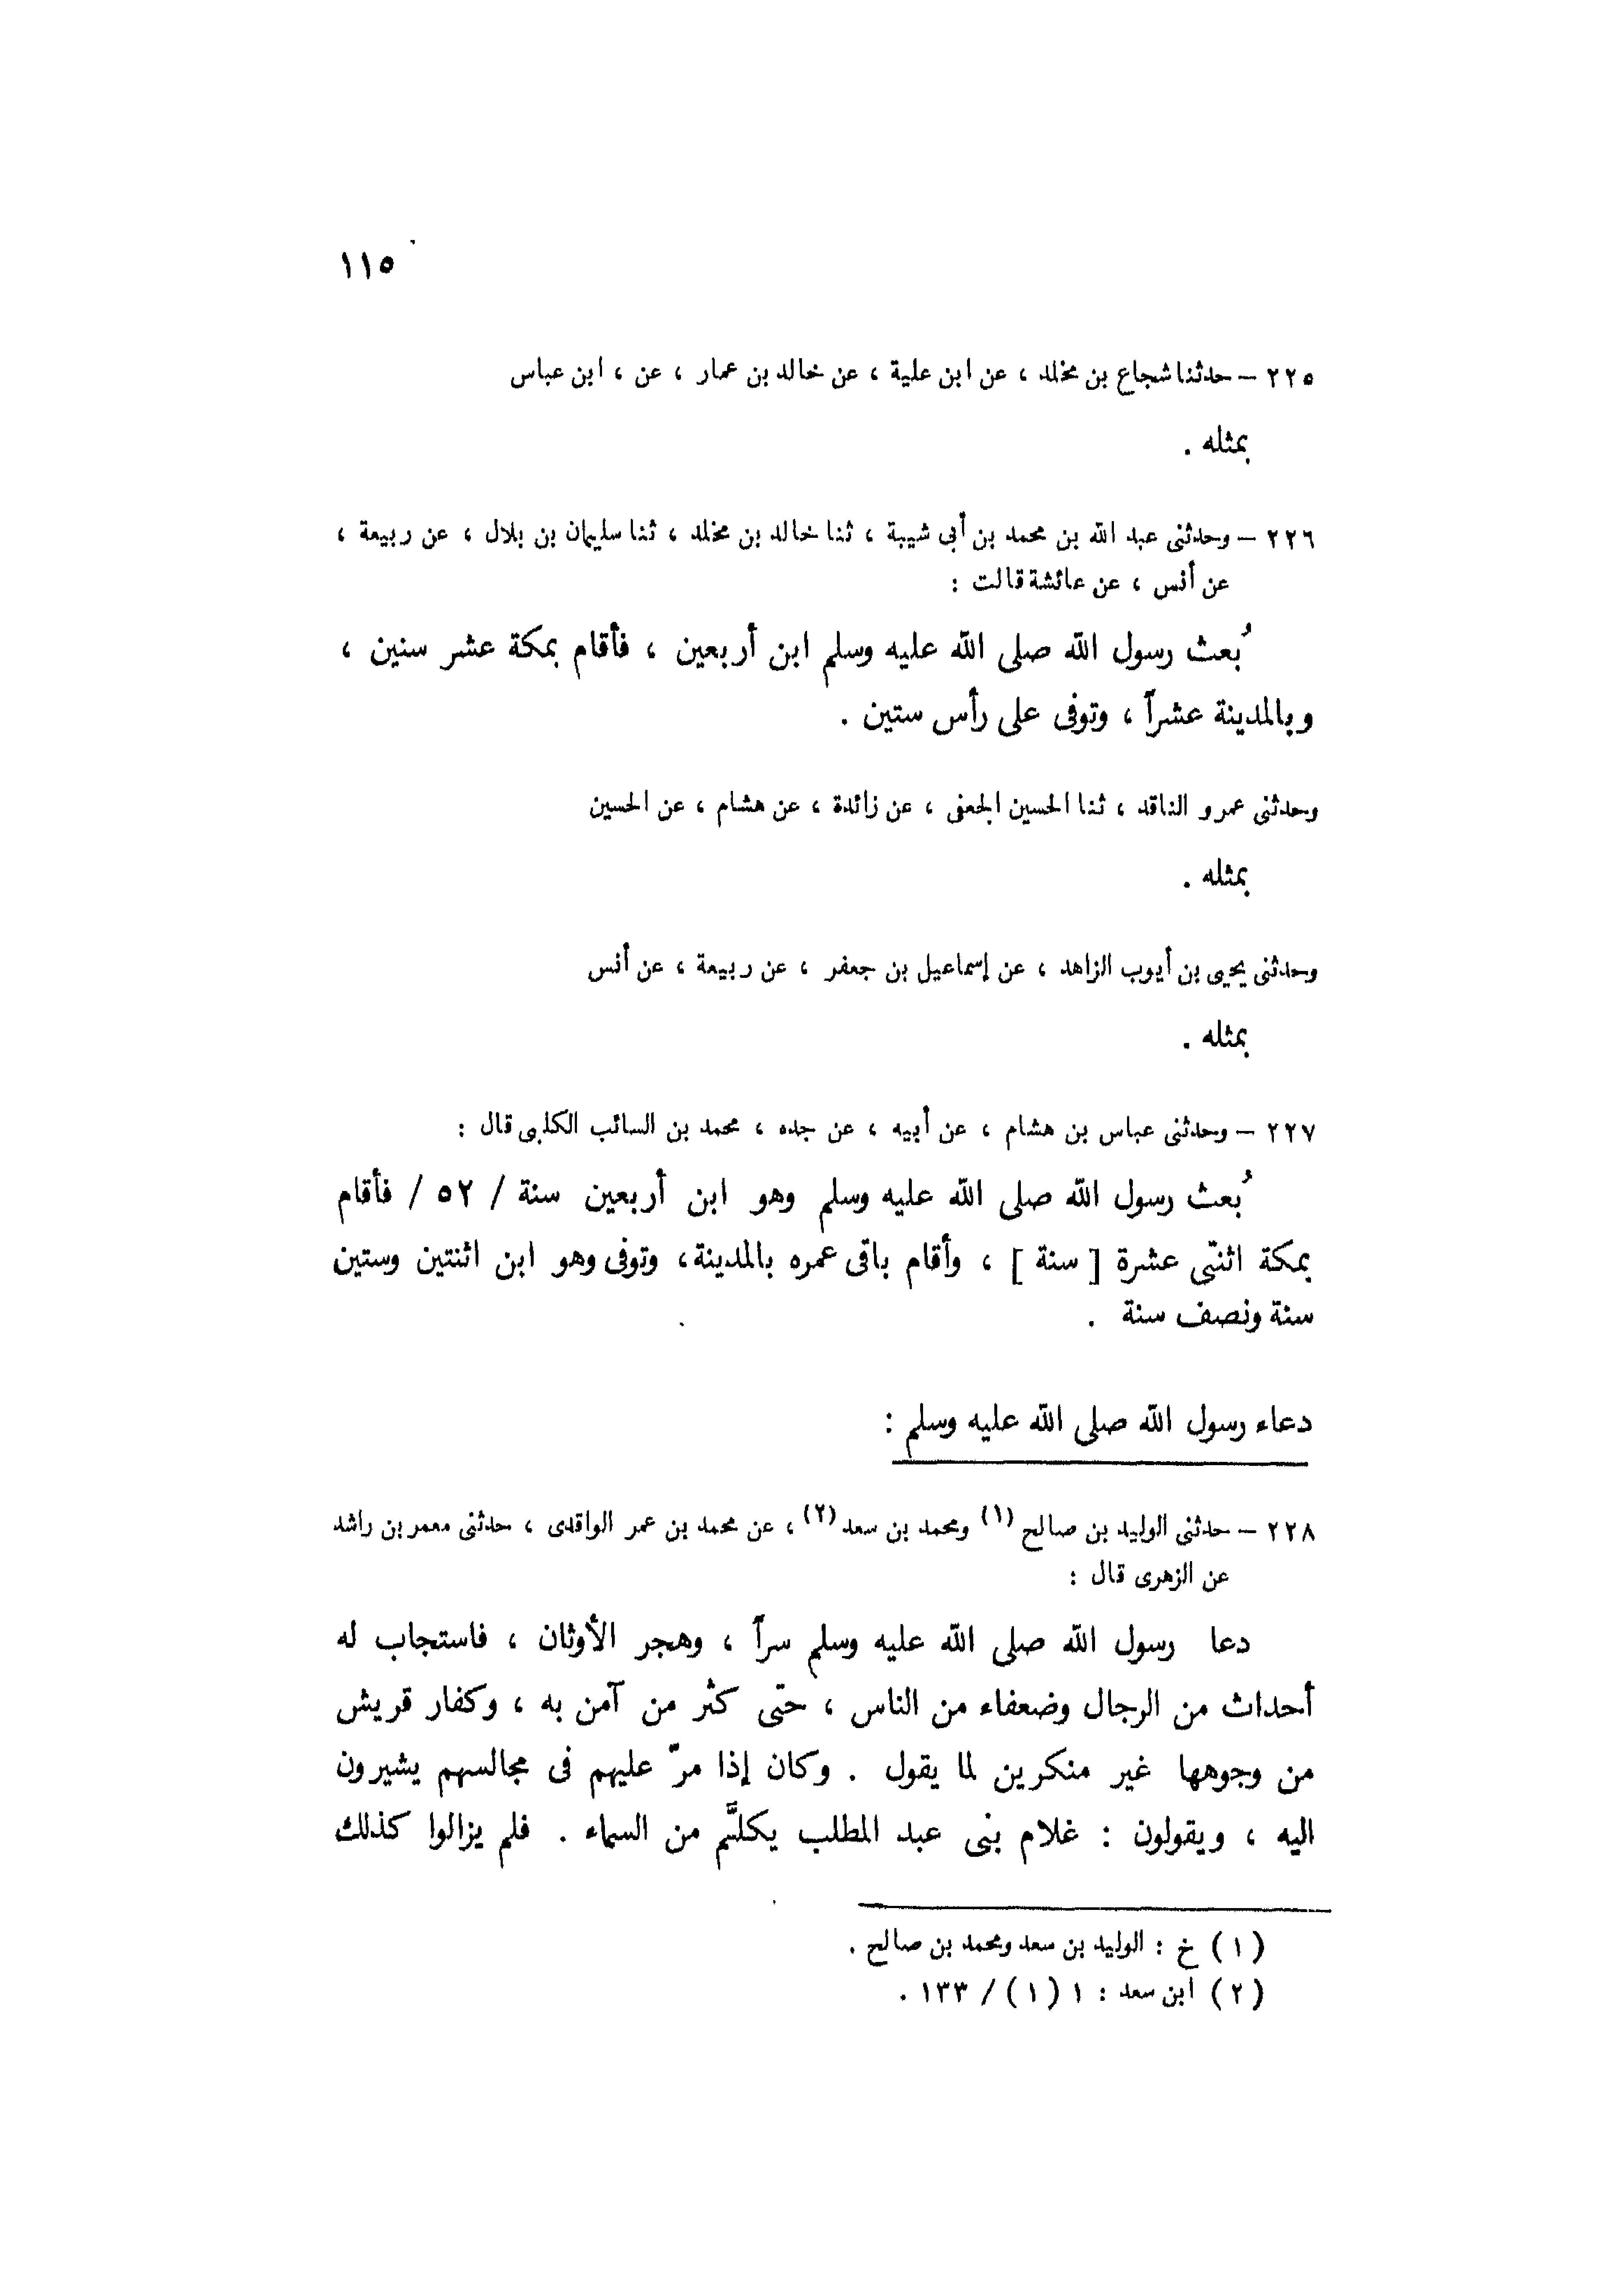 ١١٥
٢٢٥ – حدثنا شجاع بن مخلد ، عن ابن علية ، عن خالد بن عمار ، عن ، ابن عباس
بمثله .
٢٢٦ – وحدثنى عبد الله بن محمد بن أبى شيبة ، ثنا خالد بن مخلد ، ثنا سليمان بن بلال ، عن ربيعة ،
عن أنس ، عن عائشة قالت :
بُعث رسول الله صلى الله عليه وسلم ابن أربعين ، فأقام بمكة عشر سنين ،
وبالمدينة عشراً ، وتوفى على رأس ستين .
وحدثنى عمرو الناقد ، ثنا الحسين الجعفى ، عن زائدة ، عن هشام ، عن الحسين
بمثله .
وحدثنى يحيى بن أيوب الزاهد ، عن إسماعيل بن جعفر ، عن ربيعة ، عن أنس
بمثله .
٢٢٧ – وحدثنى عباس بن هشام ، عن أبيه ، عن جده ، محمد بن السائب الكلبى قال :
بُعث رسول الله صلى الله عليه وسلم وهو ابن أربعين سنة / ٥٢ / فأقام
بمكة اثنتى عشرة [ سنة ] ، وأقام باقى عمره بالمدينة ، وتوفى وهو ابن اثنتين وستين
سنة ونصف سنة .
دعاء رسول الله صلى الله عليه وسلم :
٢٢٨ – حدثنى الوليد بن صالح (١) ومحمد بن سعد (٢) ، عن محمد بن عمر الواقدى ، حدثنى معمر بن راشد
عن الزهرى قال :
دعا رسول الله صلى الله عليه وسلم سراً ، وهجر الأوثان ، فاستجاب له
أحداث من الرجال وضعفاء من الناس ، حتى كثر من آمن به ، وكفار قريش
من وجوهها غير منكرين لما يقول . وكان إذا مرّ عليهم فى مجالسهم يشيرون
اليه ، ويقولون : غلام بنى عبد المطلب يكلَّم من السماء . فلم يزالوا كذلك
(١) خ : الوليد بن سعد ومحمد بن صالح .
(٢) ابن سعد : ١ (١) / ١٣٣ .